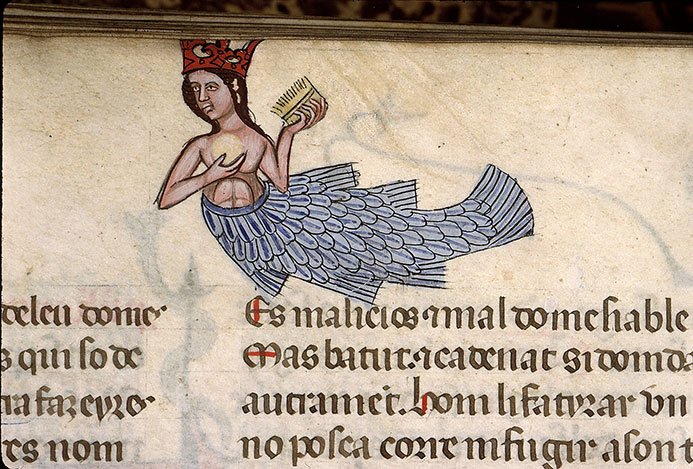 deleu dome·
s qui so de
ra fazeyre·
es nom
Es malicios ⁊ mal domesiable
Mas batut ⁊ cadenat si domda
autramēt. hom li fa tyrar vn
no posca corre ni fugir a sont